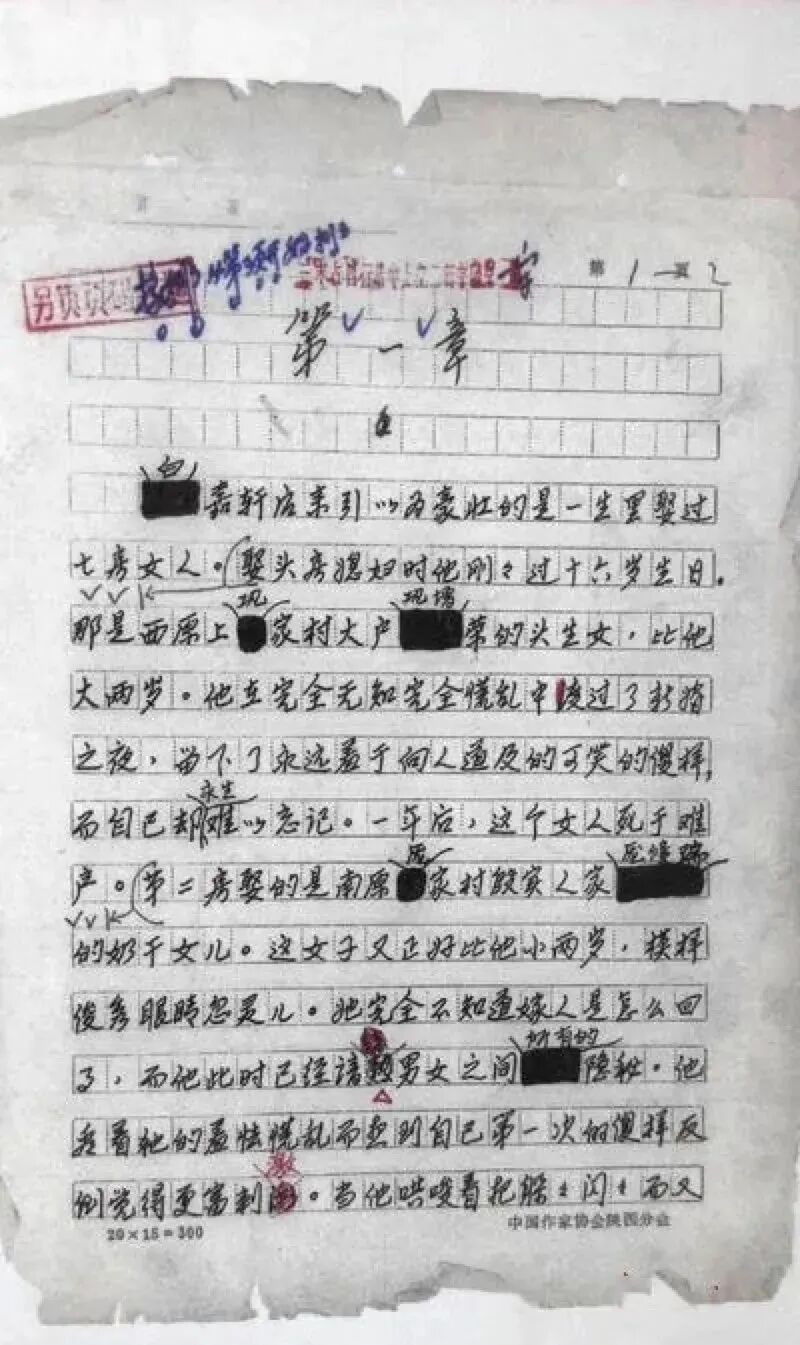 第1页 2
第一章
白嘉轩后来引以为豪壮的是一生里娶过
七房女人。娶头房媳妇时他刚刚过十六岁生日。
那是西原上巩家村大户巩增荣的头生女，比他
大两岁。他在完全无知完全慌乱中度过了新婚
之夜，留下了永远羞于向人道及的可笑的傻样，
而自己却永生难以忘记。一年后，这个女人死于难
产。第二房娶的是南原庞家村殷实人家庞修瑞
的奶干女儿。这女子又正好比他小两岁，模样
俊秀眼睛忽灵儿。她完全不知道嫁人是怎么回
事，而他此时已经谙熟男女之间所有的隐秘。他
看着她的羞怯慌乱而想到自己第一次的傻样反
倒觉得更富刺激。当他哄唆着把躲躲闪闪而又
20×15=300
中国作家协会陕西分会